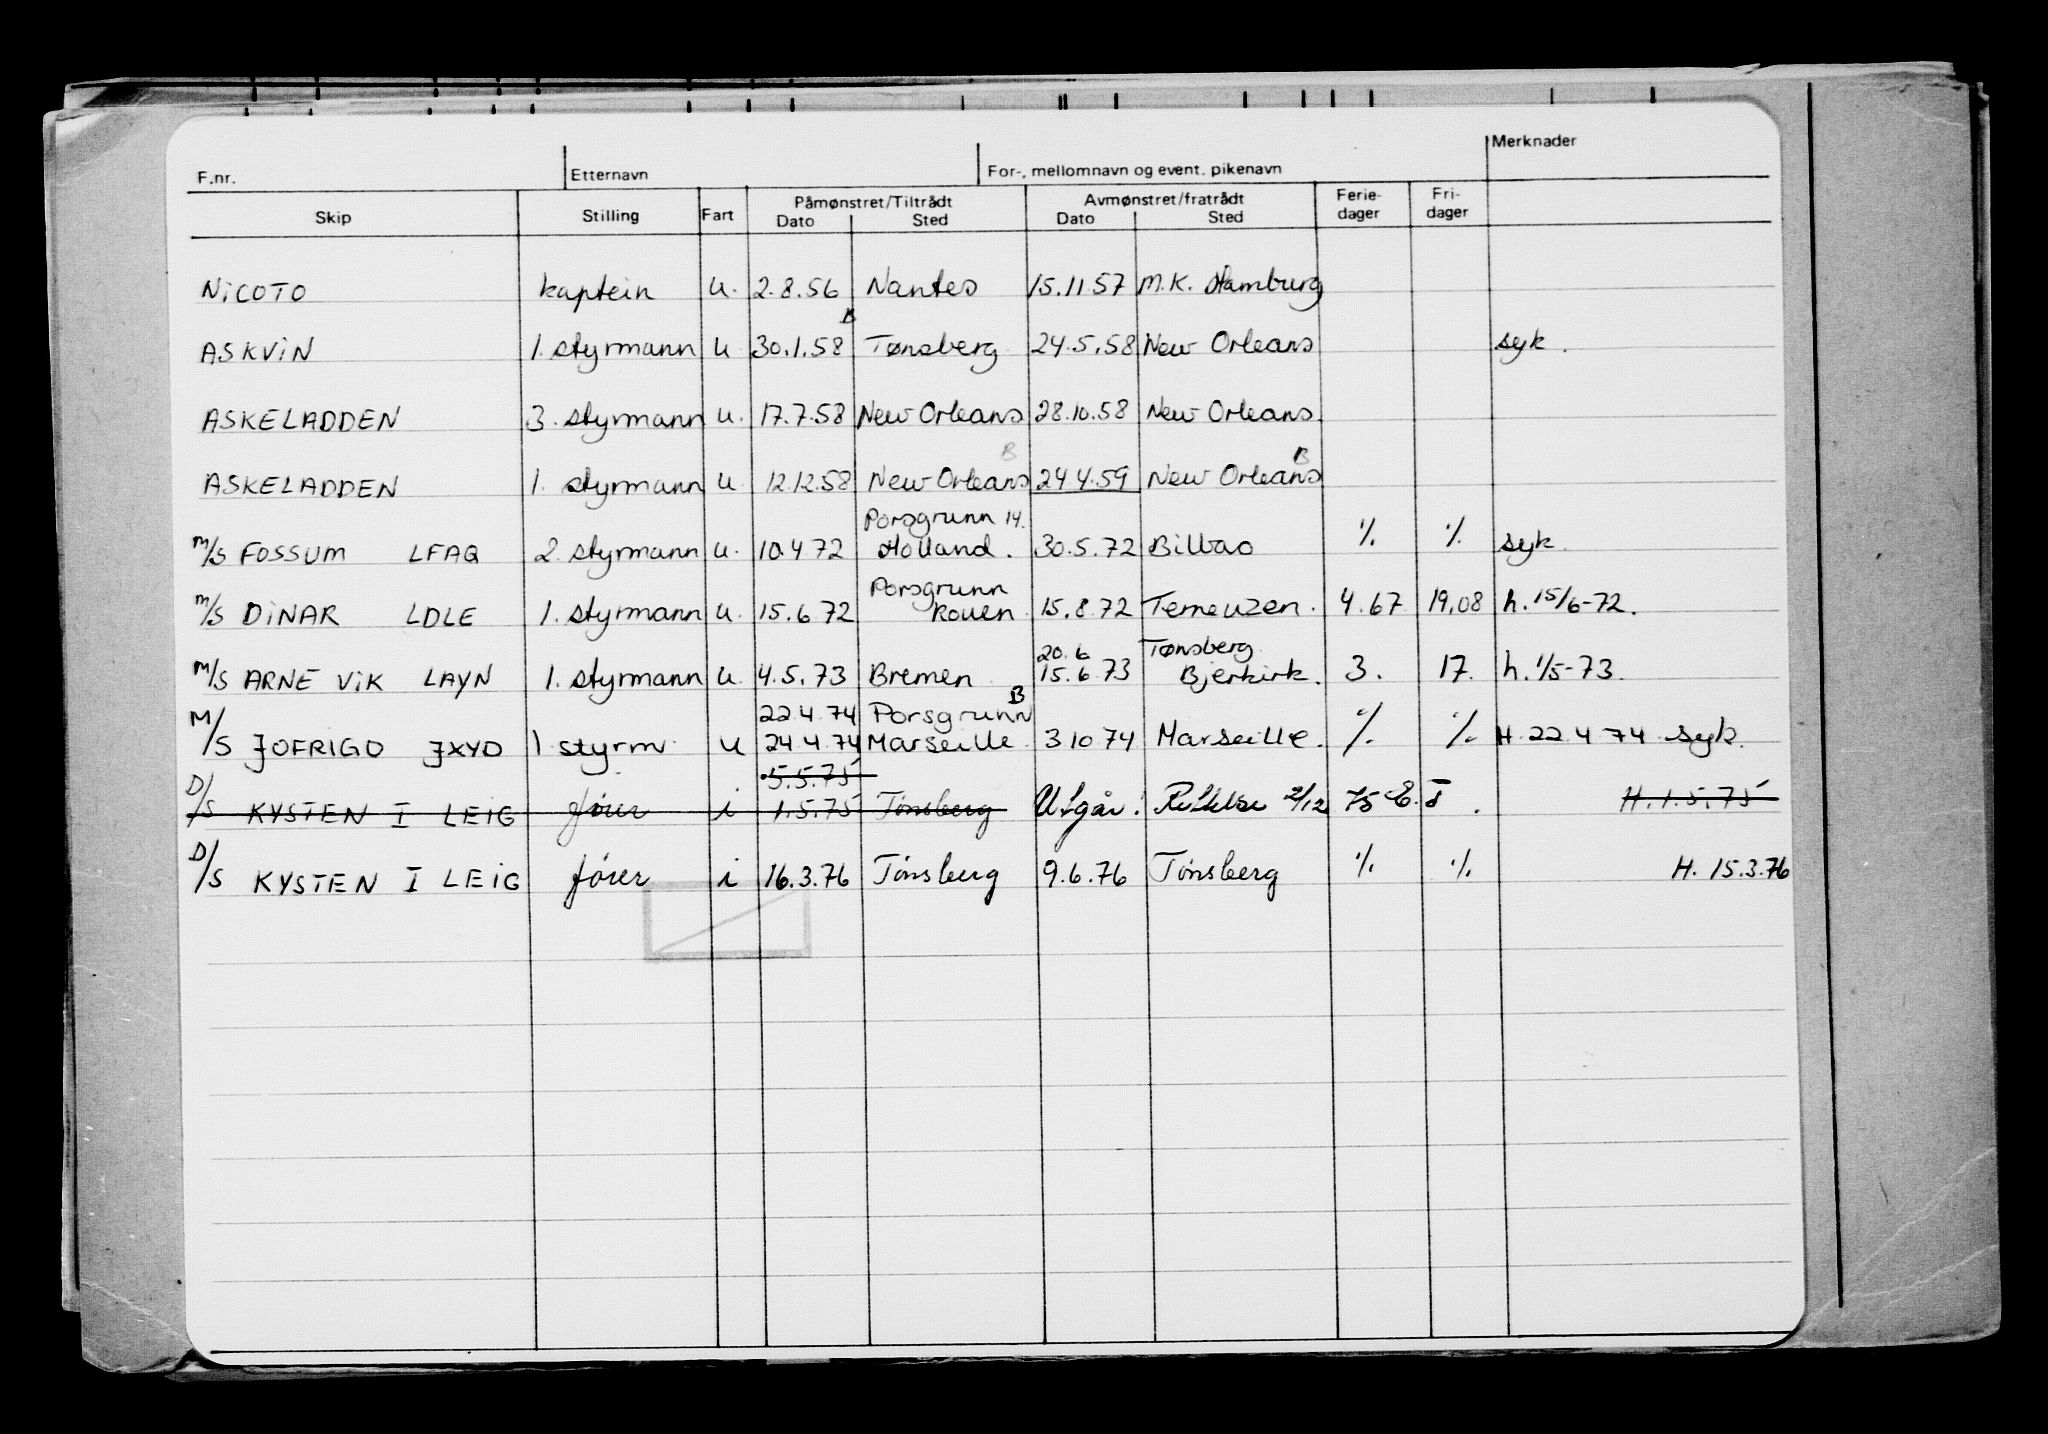 F.nr. Etternavn For-, mellomnavn og event. pikenavn Merknader
Skip Stilling Fart Påmønstret/Tiltrådt Dato Sted Avmønstret/fratrådt Dato Sted Ferie-dager Fri-dager
NiCOTO kaptein u. 2.8.56 Nantes 15.11 57 M.K. Hamburg
B
ASKViN 1. styrmann u 30.1.58 Tønsberg 24.5.58 New Orleans syk.
ASKELADDEN 3. styrmann u. 17.7.58 New Orleans 28.10.58 New Orleans
B B
ASKELADDEN 1. styrmann u 12.12.58 New Orleans 24 4.59 New Orleans
Porsgrunn 14.
M/S FOSSUM LFAQ 2. styrmann u. 10.4 72 Holland. 30.5.72 Bilbao % % syk.
Porsgrunn
M/S DiNAR LDLE 1. styrmann u. 15.6.72 Rouen 15.8.72 Terneuzen. 4.67 19,08 h. 15/6-72.
20.6 Tønsberg
M/S ARNE ViK LAYN 1. styrmann u. 4.5.73 Bremen 15.6.73 Bjerkirk. 3. 17. h. 1/5-73.
22.4.74 Porsgrunn B
M/S JOFRIGO JXYD 1 styrm u 24.4.74 Marseille 3.10 74 Marseille. % % H. 22.4 74 syk.
5.5.75
D/S KYSTEN I LEIG fører i 1.5.75 Tønsberg Utgår! Rettelse 2/12 75 H. 1.5.75
D/S KYSTEN I LEIG fører i 16.3.76 Tønsberg 9.6.76 Tønsberg % % H. 15.3.76